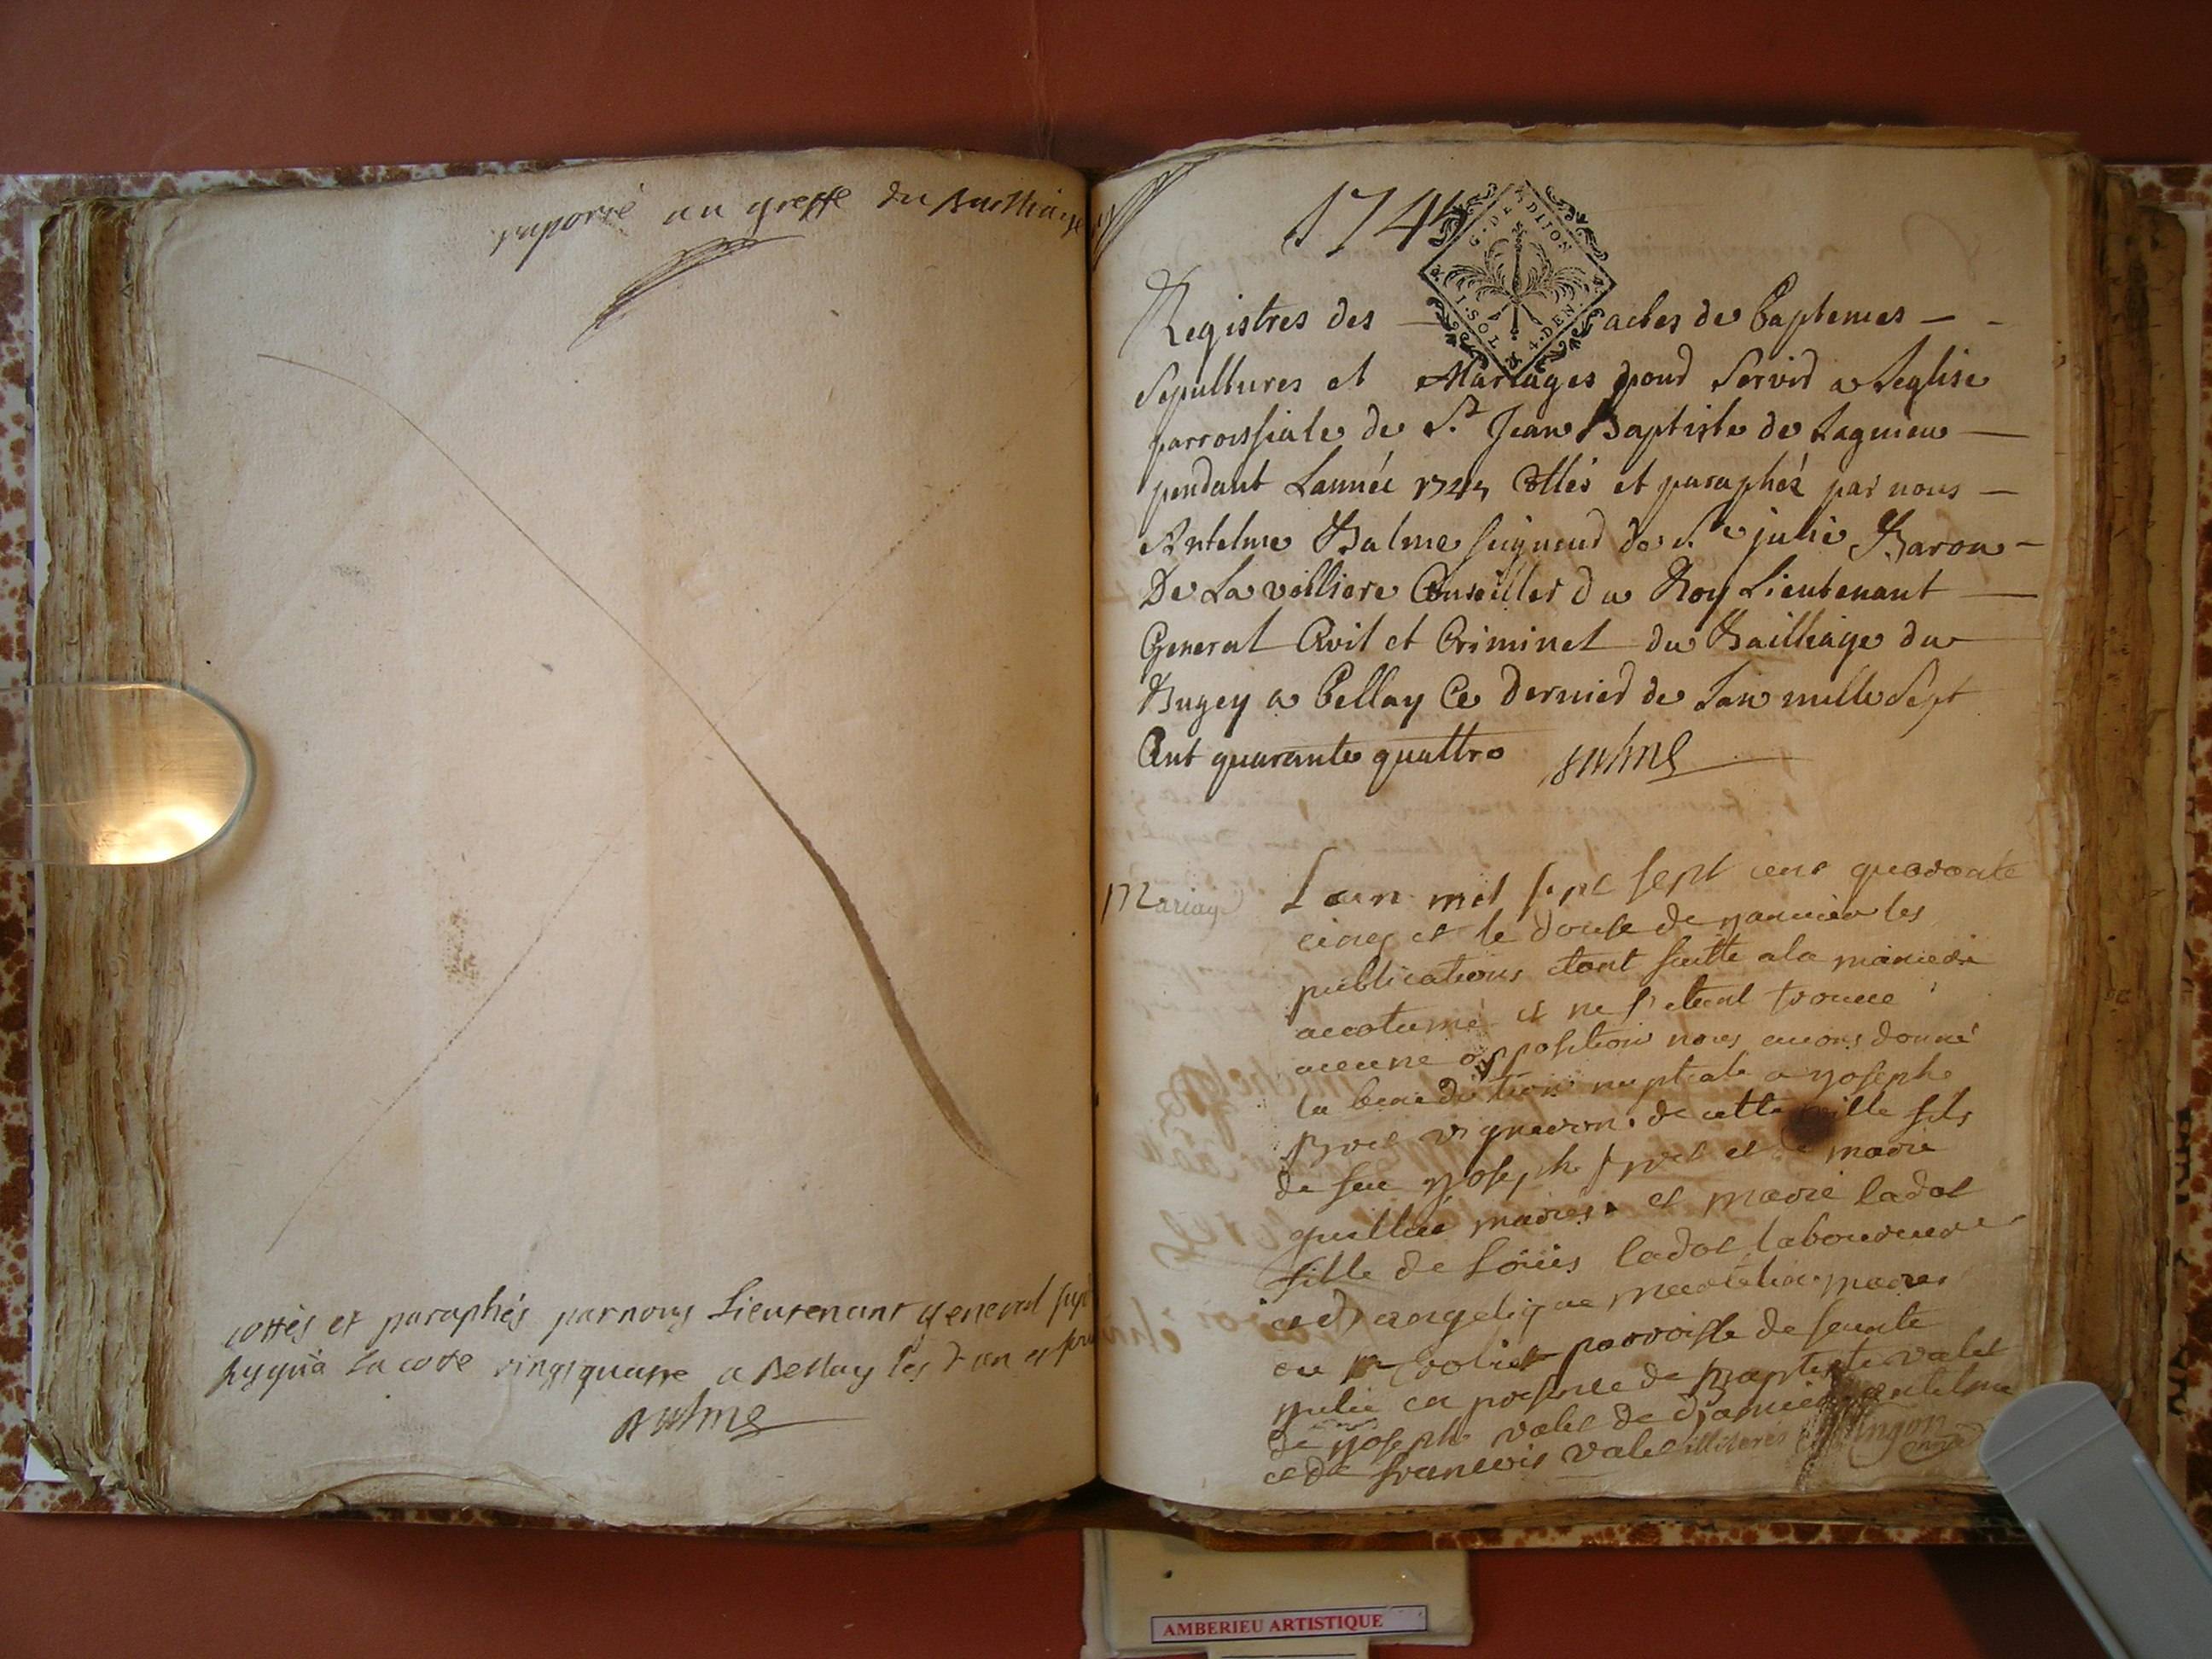 raporté au greffe du Bailliage
cottés et paraphés par nous Lieutenant general
jusqu'a la cote vingt quatre a Bellay les d. an et
Balme
1745
G. DE DIJON
1. SOL 4. DEN.
Registres des actes de Baptemes
Sepultures et Mariages pour Servir a Leglise
parroissiale de St. Jean Baptiste de Lagnieu
pendant Lannée 1745 Cottés et paraphéz par nous
Antelme Balme seigneur de Ste julie Baron
De La velliere Conseiller du Roy Lieutenant
General Civil et Criminel du Bailliage du
Bugey a Bellay Ce dernier de Lan mille Sept
Cent quarante quattre Balme
Mariage
L'an mil sept sept cent quarante
cinq et le douse de yanvier les
publications etant faitte a la maniere
accotumé et ne s'etant trouvé
aucune opposition nous avons donné
la benediction nuptiale a yoseph
vigneron de cette ville fils
de feu yoseph et de marie
mariés et marie ladol
fille de Loüis ladol laboureur
et d'angelique mariés
parroisse de sainte
yulie en presence de Baptiste valet
de yoseph valet de antelme
et de francois valet illiteres
AMBERIEU ARTISTIQUE